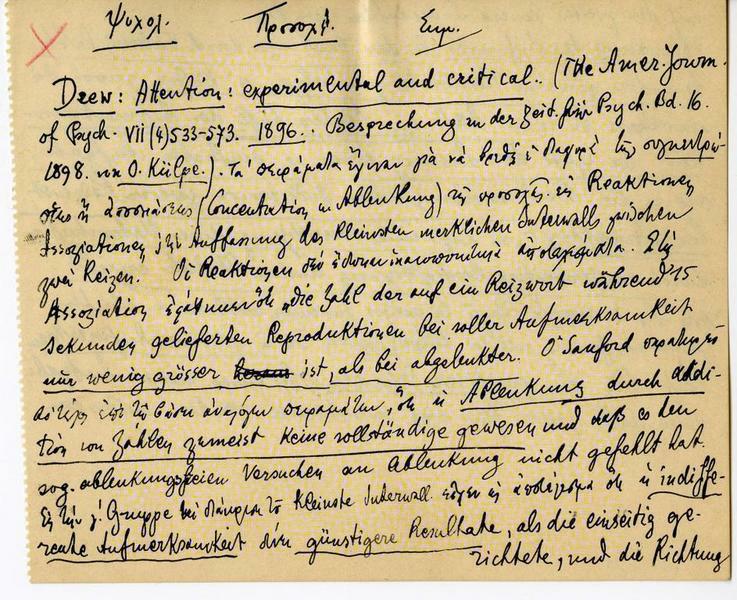 Ψυχολ. Προσοχή. Σημ.
Drew: Attention: experimental and critical.. (The Amer. Journ.
of Psych. VII (4) 533-573. 1896.. Besprechung in der Zeit. für Psych. Bd. 16.
1898. von O. Külpe.). Τα πειράματα έγιναν για να βρεθή η διαφορά της συγκεντρώ-
σεως ή αποσπάσεως (Concentration u. Ablenkung) της προσοχής εις Reaktionen
Assoziationen Auffassung des kleinsten merklichen Intervalls zwischen
zwei Reizen. Οι Reaktionen δεν έδωσαν ικανοποιητικά αποτελέσματα. Στη
Assoziation "die Zahl der auf ein Reizwort während 15
Sekunden gelieferten Reproduktionen bei voller Aufmerksamkeit
nur wenig grösser ist, als bei abgelenkter. Ο Sanford παρατηρεί
επί τη βάσει αναλόγων πειραμάτων, ότι η Ablenkung durch Addi-
tion von Zahlen zumeist keine vollständige gewesen und daß es den
sog. ablenkungsfreien Versuchen an Ablenkung nicht gefehlt hat.
Εις την γ' Gruppe το kleinste Intervall ότι η indiffe-
rente Aufmerksamkeit δίνει günstigere Resultate, als die einseitig ge-
richtete, und die Richtung